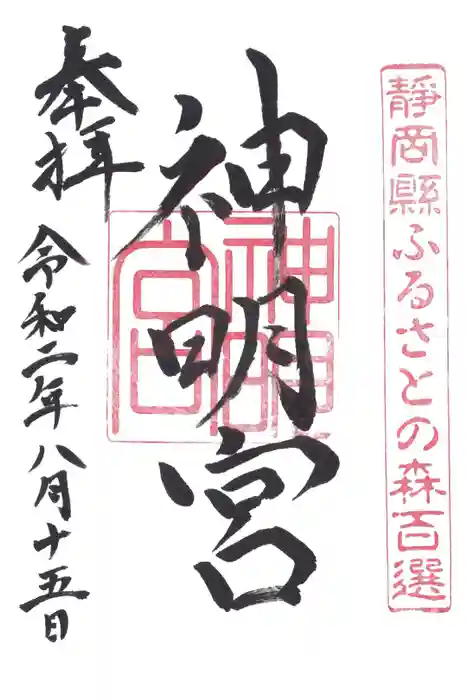 静岡縣ふるさとの森百選
神明宮
神明宮
奉拝
令和二年八月十五日